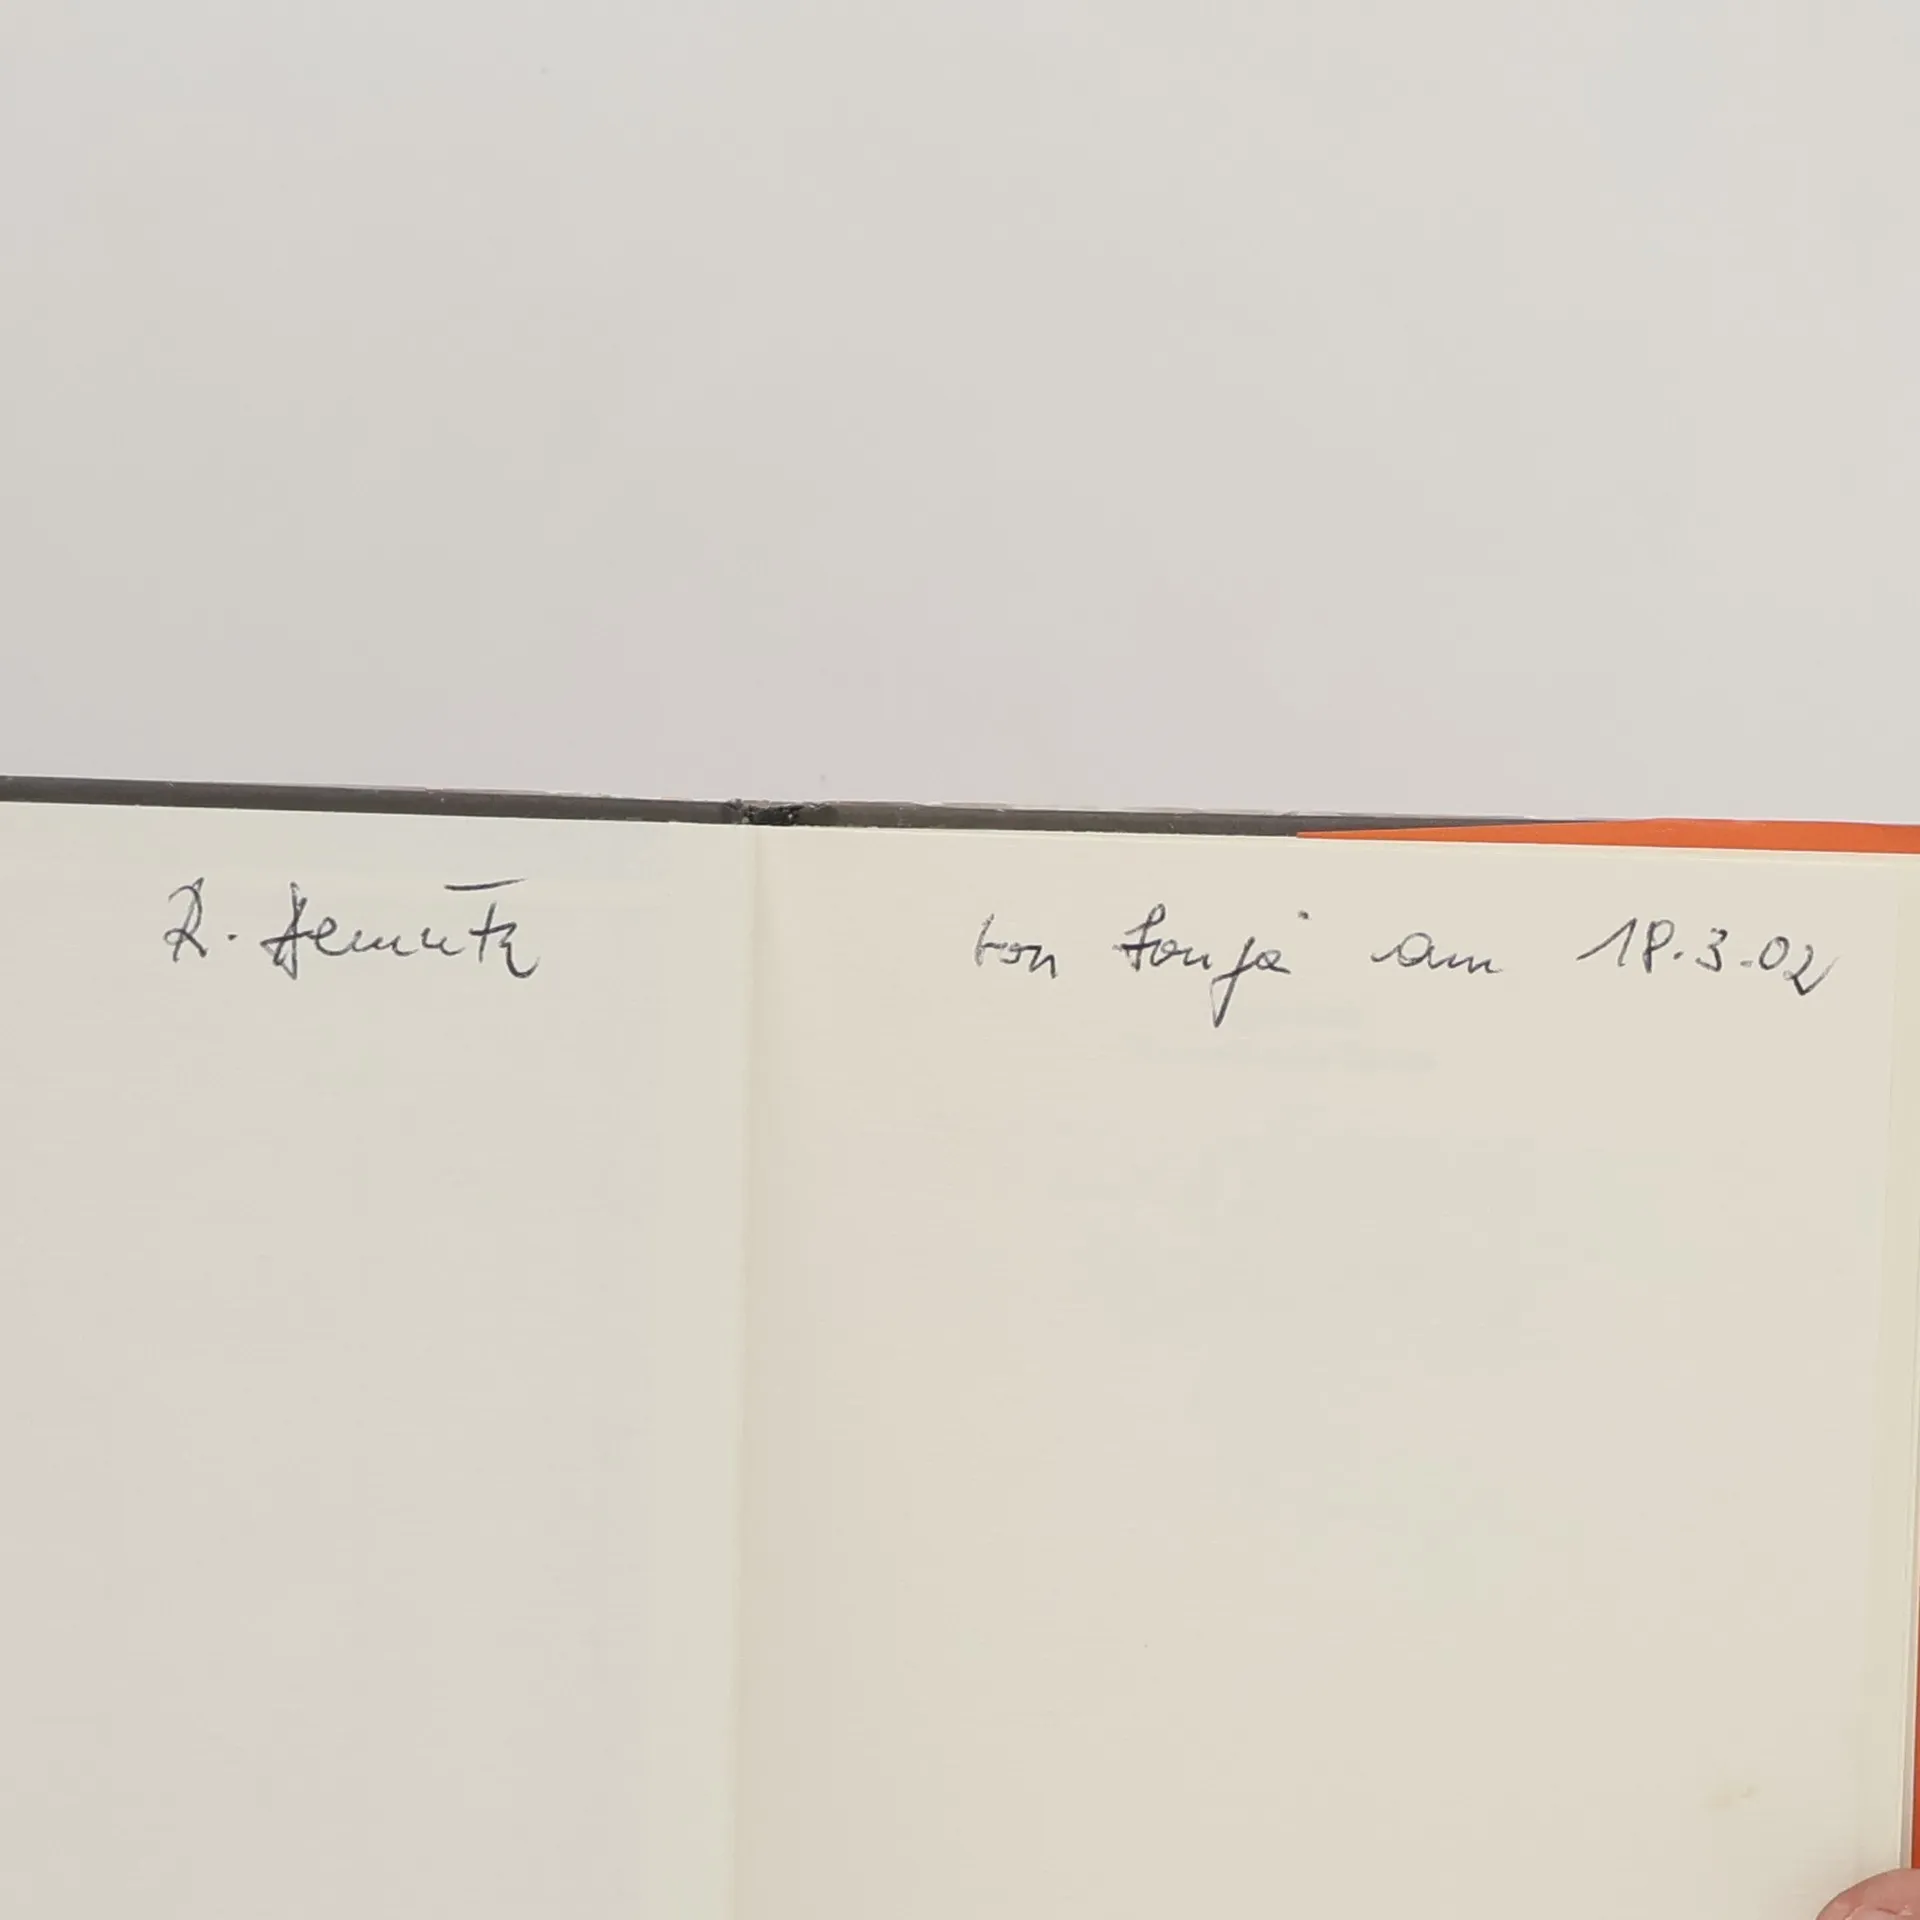 R.
von Sonja am 18.3.02